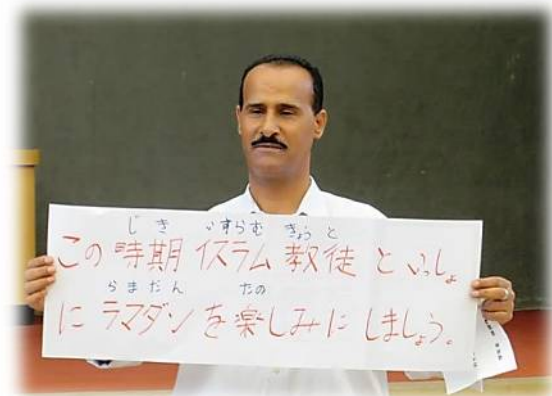 じき いすらむ きょうと
この時期イスラム教徒といっしょ
らまだん たの
にラマダンを楽しみにしましょう。